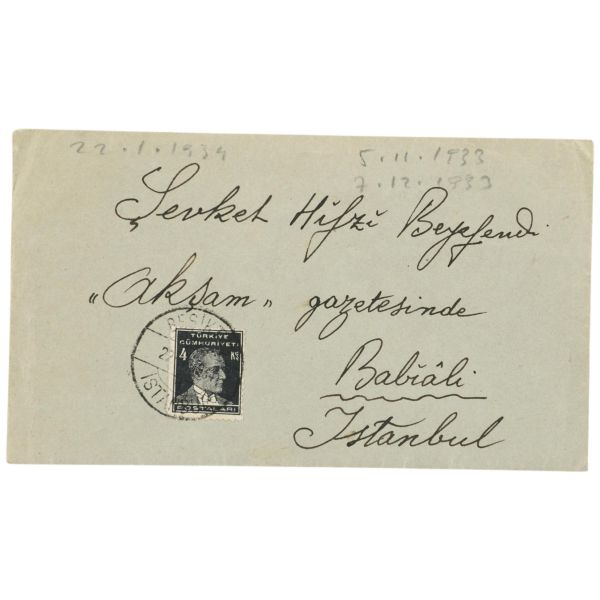 22.1.1934
5.11.1933
7.12.1933
Şevket Hîfzî Beyefendi
„Akşam„ gazetesinde
Babîâli
İstanbul
BEŞİK
TÜRKİYE
CÜMHURİYETİ
4 KŞ
POSTALARI
İSTA